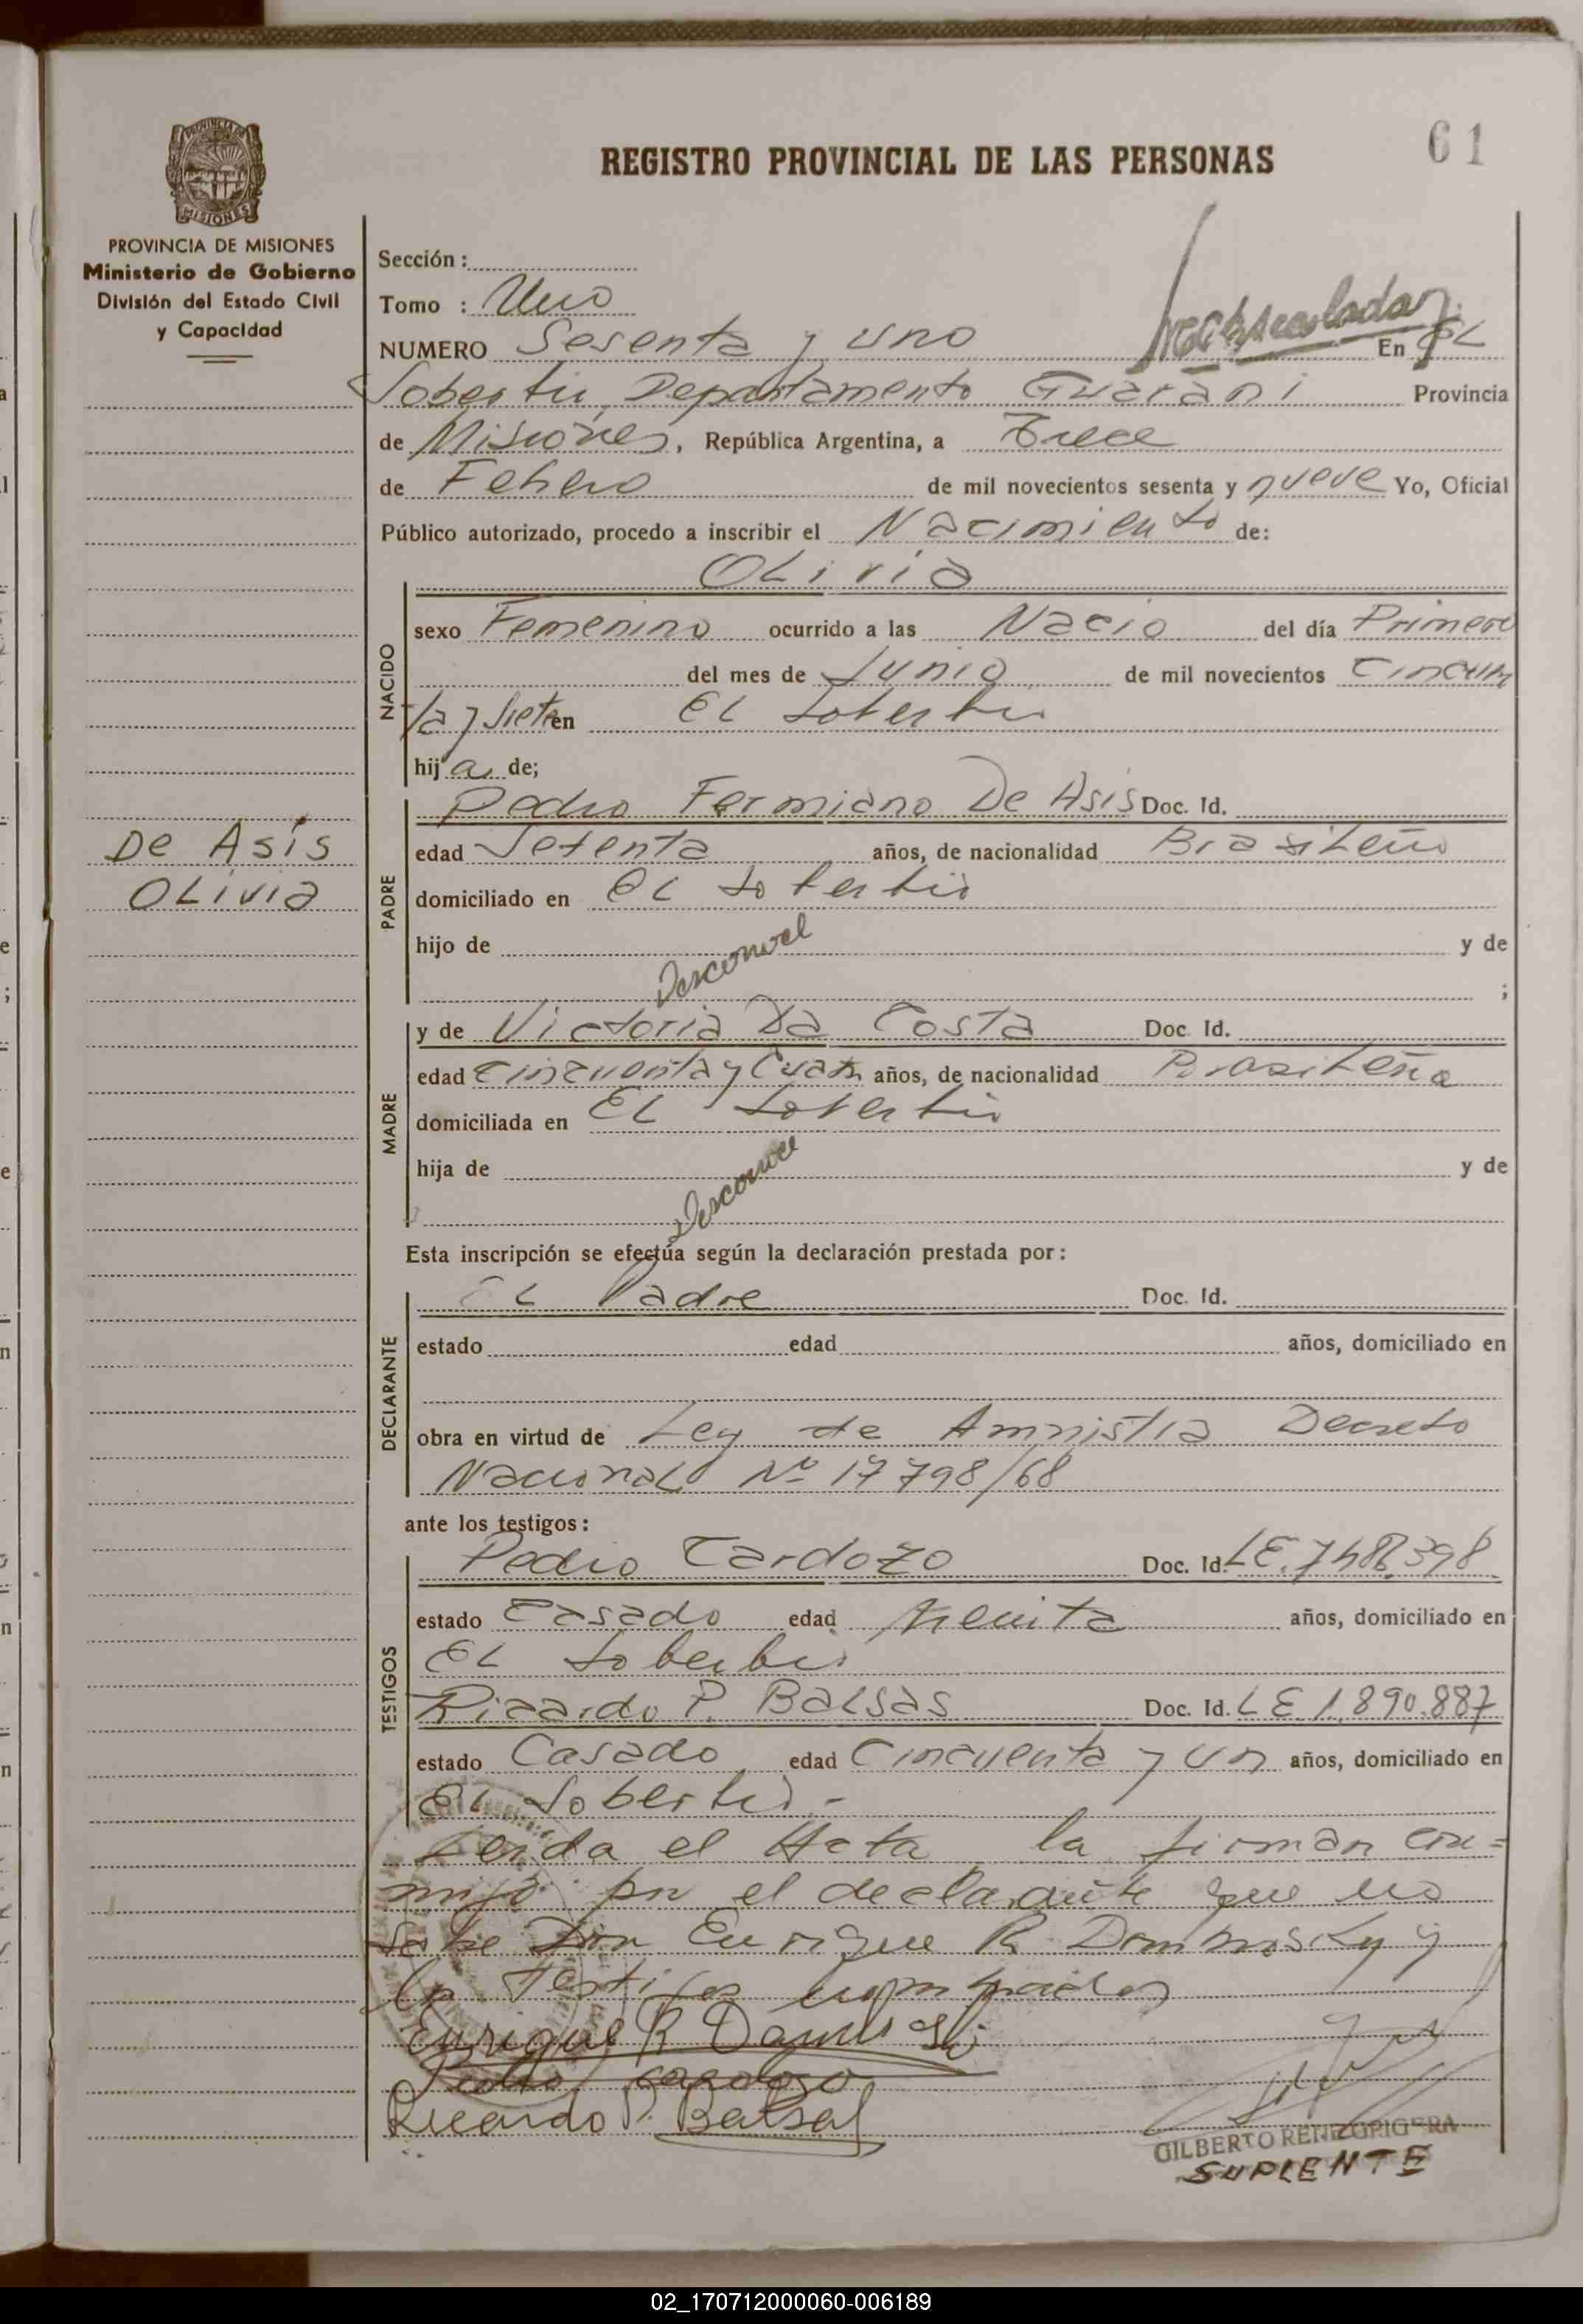 61
REGISTRO PROVINCIAL DE LAS PERSONAS
PROVINCIA DE MISIONES
MISIONES
PROVINCIA DE MISIONES
Ministerio de Gobierno
División del Estado Civil
y Capacidad
De Asís
OLivia
Sección :
Tomo : Uno
NUMERO Sesenta y uno En EL
Soberbio, Departamento Guarani Provincia
de Misiones, República Argentina, a Trece
de Febrero de mil novecientos sesenta y nueve Yo, Oficial
Público autorizado, procedo a inscribir el Nacimiento de:
OLivia
NACIDO
sexo Femenino ocurrido a las Nacio del día Primero
del mes de Junio de mil novecientos Cincuen
ta y Siete en EL Soberbio
hija de;
PADRE
Pedro Fermiano De Asis Doc. Id.
edad Setenta años, de nacionalidad BrasiLeño
domiciliado en EL Soberbio
hijo de y de
Desconoce
;
MADRE
y de Victoria Da Costa Doc Id.
edad Cincuenta y Cuatro años, de nacionalidad BrasiLeña
domiciliada en EL Soberbio
hija de y de
Desconoce
Esta inscripción se efectúa según la declaración prestada por:
DECLARANTE
EL Padre Doc. Id.
estado edad años, domiciliado en
obra en virtud de Ley de Amnistia Decreto
NacionaL Nº 17798/68
ante los testigos:
TESTIGOS
Pedro Cardozo Doc. Id. LE.
estado Casado edad Treinta años, domiciliado en
EL Soberbio
Ricardo P. BaLsas Doc. Id. LE 1.890.887
estado Casado edad Cincuenta y un años, domiciliado en
EL Soberbio.-
Leida el Acta la firman con-
migo por el declarante que no
sabe Don Enrique R. y
los Testigos nombrados
Enrique R
Pedro cardozo
Ricardo P. Balsas
GILBERTO RENE
SUPLENTE
02_170712000060-006189